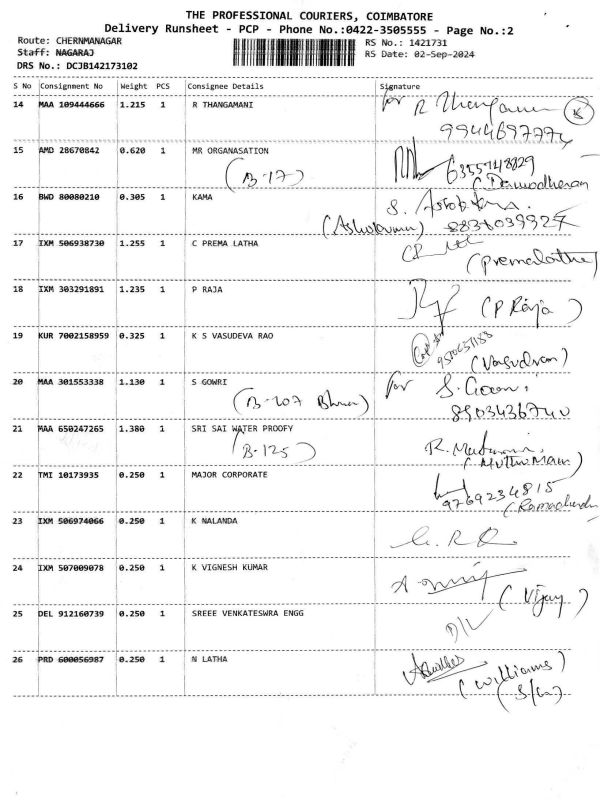 THE PROFESSIONAL COURIERS, COIMBATORE
Delivery Runsheet - PCP - Phone No.:0422-3505555 - Page No.:2
Route: CHERNMANAGAR RS No.: 1421731
Staff: NAGARAJ RS Date: 02-Sep-2024
DRS No.: DCJB142173102
S No Consignment No Weight PCS Consignee Details Signature
14 MAA 109444666 1.215 1 R THANGAMANI for R Thangamani
15 AMD 28670842 0.620 1 MR ORGANASATION 6355748829
(B-17) (Damodheran
16 BWD 80080210 0.305 1 KAMA
8836039927
17 IXM 506938730 1.255 1 C PREMA LATHA
(Premalatha)
18 IXM 303291891 1.235 1 P RAJA (P Raja)
19 KUR 7002158959 0.325 1 K S VASUDEVA RAO
20 MAA 301553338 1.130 1 S GOWRI for S. Gowri
(B-107 8903436740
21 MAA 650247265 1.380 1 SRI SAI WATER PROOFY
(B-125)
22 TMI 10173935 0.250 1 MAJOR CORPORATE
9769234815
23 IXM 506974066 0.250 1 K NALANDA
24 IXM 507009078 0.250 1 K VIGNESH KUMAR
(Vijay)
25 DEL 912160739 0.250 1 SREEE VENKATESWRA ENGG
26 PRD 600056987 0.250 1 N LATHA
(Williams)